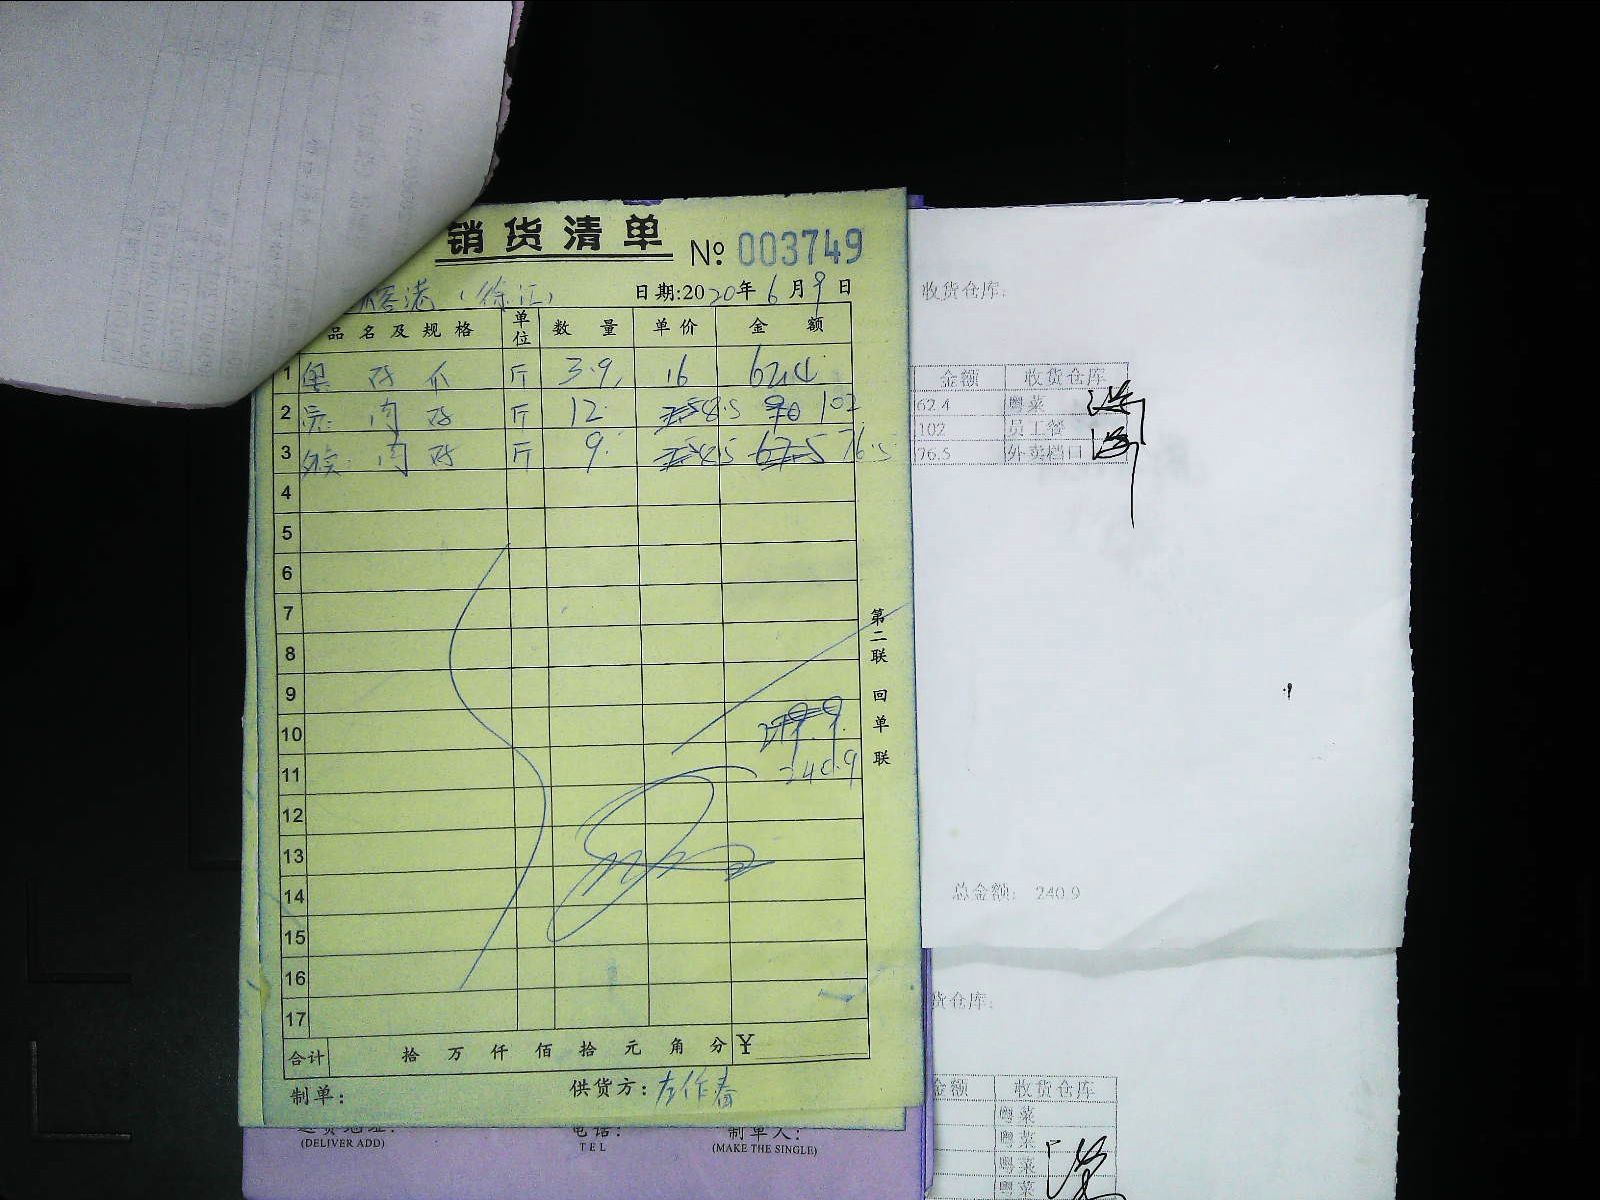 销货清单 № 003749
(徐汇) 日期:2020年6月9日
品名及规格 单位 数量 单价 金额
1 斤 3.9 16 62.4
2 肉 斤 12 8.5 102
3 肉 斤 9 8.5 76.5
4
5
6
7
8
9
10
11 240.9
12
13
14
15
16
17
合计 拾万仟佰拾元角分 ¥
制单: 供货方: 左作春
第二联 回单联
(DELIVER ADD) 电话: 制单人:
TEL (MAKE THE SINGLE)
收货仓库:
金额 收货仓库
62.4 粤菜
102 员工餐
76.5 外卖档口
总金额: 240.9
货仓库:
金额 收货仓库
粤菜
粤菜
粤菜
粤菜